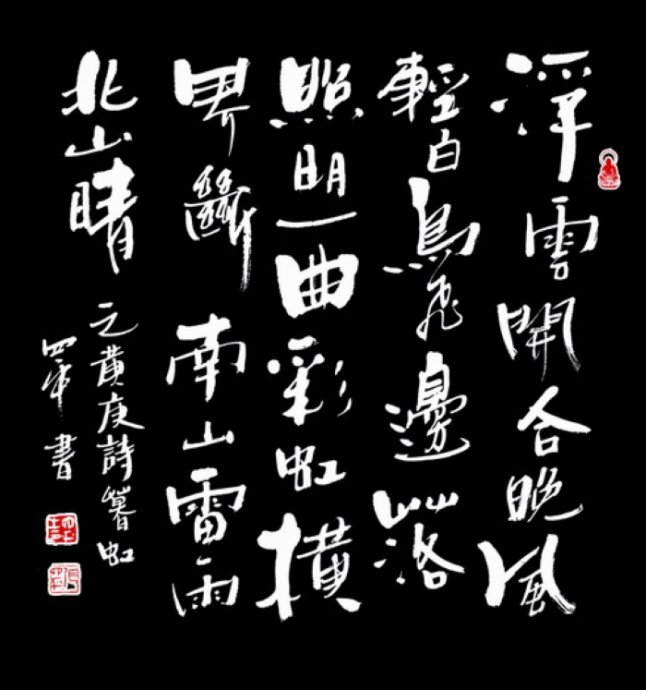 浮雲開合晚風
輕白鳥飛邊落
照明一曲彩虹橫
界斷南山雷雨
北山晴
元黃庚詩暮虹
書